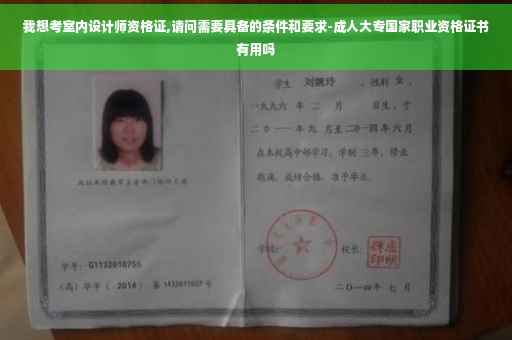 我想考室内设计师资格证,请问需要具备的条件和要求-成人大专国家职业资格证书
有用吗
学生 刘婉玲 ,性别 女 ,
一九九六 年 二 月 日生,于
二〇一一年九 月至二〇一四年六月
在本校高中部学习,学制 三年,修业
期满,成绩合格,准予毕业。
学校: 校长:
学号: G1132010755
(高)毕字( 2014 )第 1432011027 号
二〇一四年 七 月